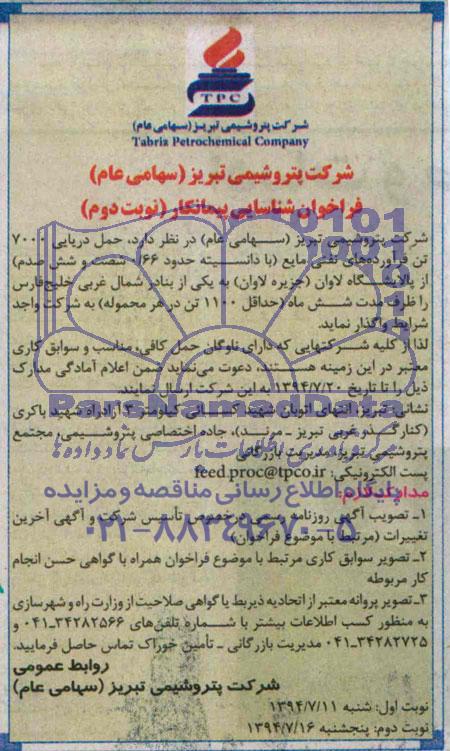 TPC
شرکت پتروشیمی تبریز (سهامی عام)
Tabriz Petrochemical Company
شرکت پتروشیمی تبریز (سهامی عام)
فراخوان شناسایی پیمانکار (نوبت دوم)
شرکت پتروشیمی تبریز (سهامی عام) در نظر دارد، حمل دریایی ۷۰۰۰
تن فرآورده‌های نفتی مایع (با دانسیته حدود ۶۶/. شصت و شش صدم)
از پالایشگاه لاوان (جزیره لاوان) به یکی از بنادر شمال غربی خلیج‌فارس
را ظرف مدت شش ماه (حداقل ۱۱۰۰ تن در هر محموله) به شرکت واجد
شرایط واگذار نماید.
لذا از کلیه شرکتهایی که دارای ناوگان حمل کافی، مناسب و سوابق کاری
معتبر در این زمینه هستند، دعوت می‌نماید ضمن اعلام آمادگی مدارک
ذیل را تا تاریخ ۱۳۹۴/۷/۲۰ به این شرکت ارسال نمایند.
نشانی: تبریز، انتهای اتوبان شهید کسائی کیلومتر ۳ آزادراه شهید باکری
(کنارگذر غربی تبریز ـ مرند)، جاده اختصاصی پتروشیمی، مجتمع
پتروشیمی تبریز، مدیریت بازرگانی
پست الکترونیکی: feed.proc@tpco.ir
مدارک لازم:
۱ـ تصویب آگهی روزنامه رسمی درخصوص تأسیس شرکت و آگهی آخرین
تغییرات (مرتبط با موضوع فراخوان)
۲ـ تصویر سوابق کاری مرتبط با موضوع فراخوان همراه با گواهی حسن انجام
کار مربوطه
۳ـ تصویر پروانه معتبر از اتحادیه ذیربط یا گواهی صلاحیت از وزارت راه و شهرسازی
به منظور کسب اطلاعات بیشتر با شماره تلفن‌های ۳۴۲۸۲۵۶۶-۰۴۱ و
۳۴۲۸۲۷۲۵-۰۴۱ مدیریت بازرگانی ـ تأمین خوراک تماس حاصل فرمایید.
روابط عمومی
شرکت پتروشیمی تبریز (سهامی عام)
نوبت اول: شنبه ۱۳۹۴/۷/۱۱
نوبت دوم: پنجشنبه ۱۳۹۴/۷/۱۶
ParsNamadData
پایگاه اطلاع رسانی مناقصه و مزایده
۰۲۱-۸۸۳۴۹۶۷۰-۵